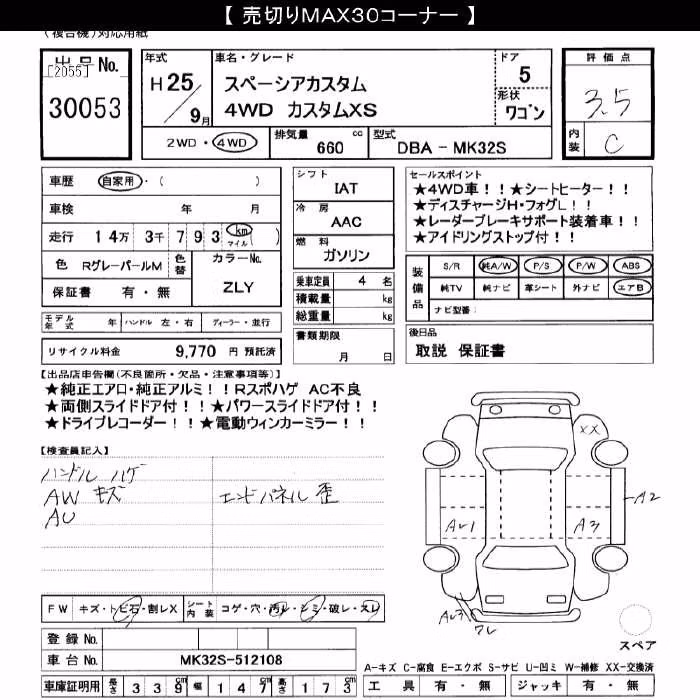 【 売切りMAX30コーナー 】
(複合機)対応用紙
出品No.
[2055]
30053
年式
H25/9月
車名・グレード
スペーシアカスタム
4WD カスタムXS
ドア
5
形状
ワゴン
2WD・4WD
排気量 660 cc
型式 DBA － MK32S
評価点
3.5
内装 C
車歴 自家用・( )
車検 年 月
走行 14万 3千 793 km マイル ( )
色 RグレーパールM 色替
カラーNo.
ZLY
保証書 有・無
モデル年式 年 ハンドル 左・右 ディーラー・並行
リサイクル料金 9,770 円 預託済
シフト
IAT
冷房
AAC
燃料
ガソリン
乗車定員 4 名
積載量 kg
総重量 kg
書類期限
月 日
セールスポイント
★4WD車！！★シートヒーター！！
★ディスチャージH・フォグL！！
★レーダーブレーキサポート装着車！！
★アイドリングストップ付！！
装備品
S/R 純A/W P/S P/W ABS
純TV 純ナビ 革シート 外ナビ エアB
ナビ型番：
後日品
取説 保証書
【出品店申告欄(不良箇所・欠品・注意事項等)】
★純正エアロ・純正アルミ！！Rスポハゲ AC不良
★両側スライドドア付！！★パワースライドドア付！！
★ドライブレコーダー！！★電動ウィンカーミラー！！
【検査員記入】
ハンドル ハゲ
AW キズ
エンドパネル 歪
AU
XX
A2
A3
ワレ
FW キズ・トビ石・割レX
シート内装 コゲ・穴・汚レ・シミ・破レ・スレ
登録 No.
車台 No. MK32S-512108
車庫証明用 長さ 339 cm 幅 147 cm 高さ 173 cm
スペア
A-キズ C-腐食 E-エクボ S-サビ U-凹ミ W-補修 XX-交換済
工具 有・無 ジャッキ 有・無